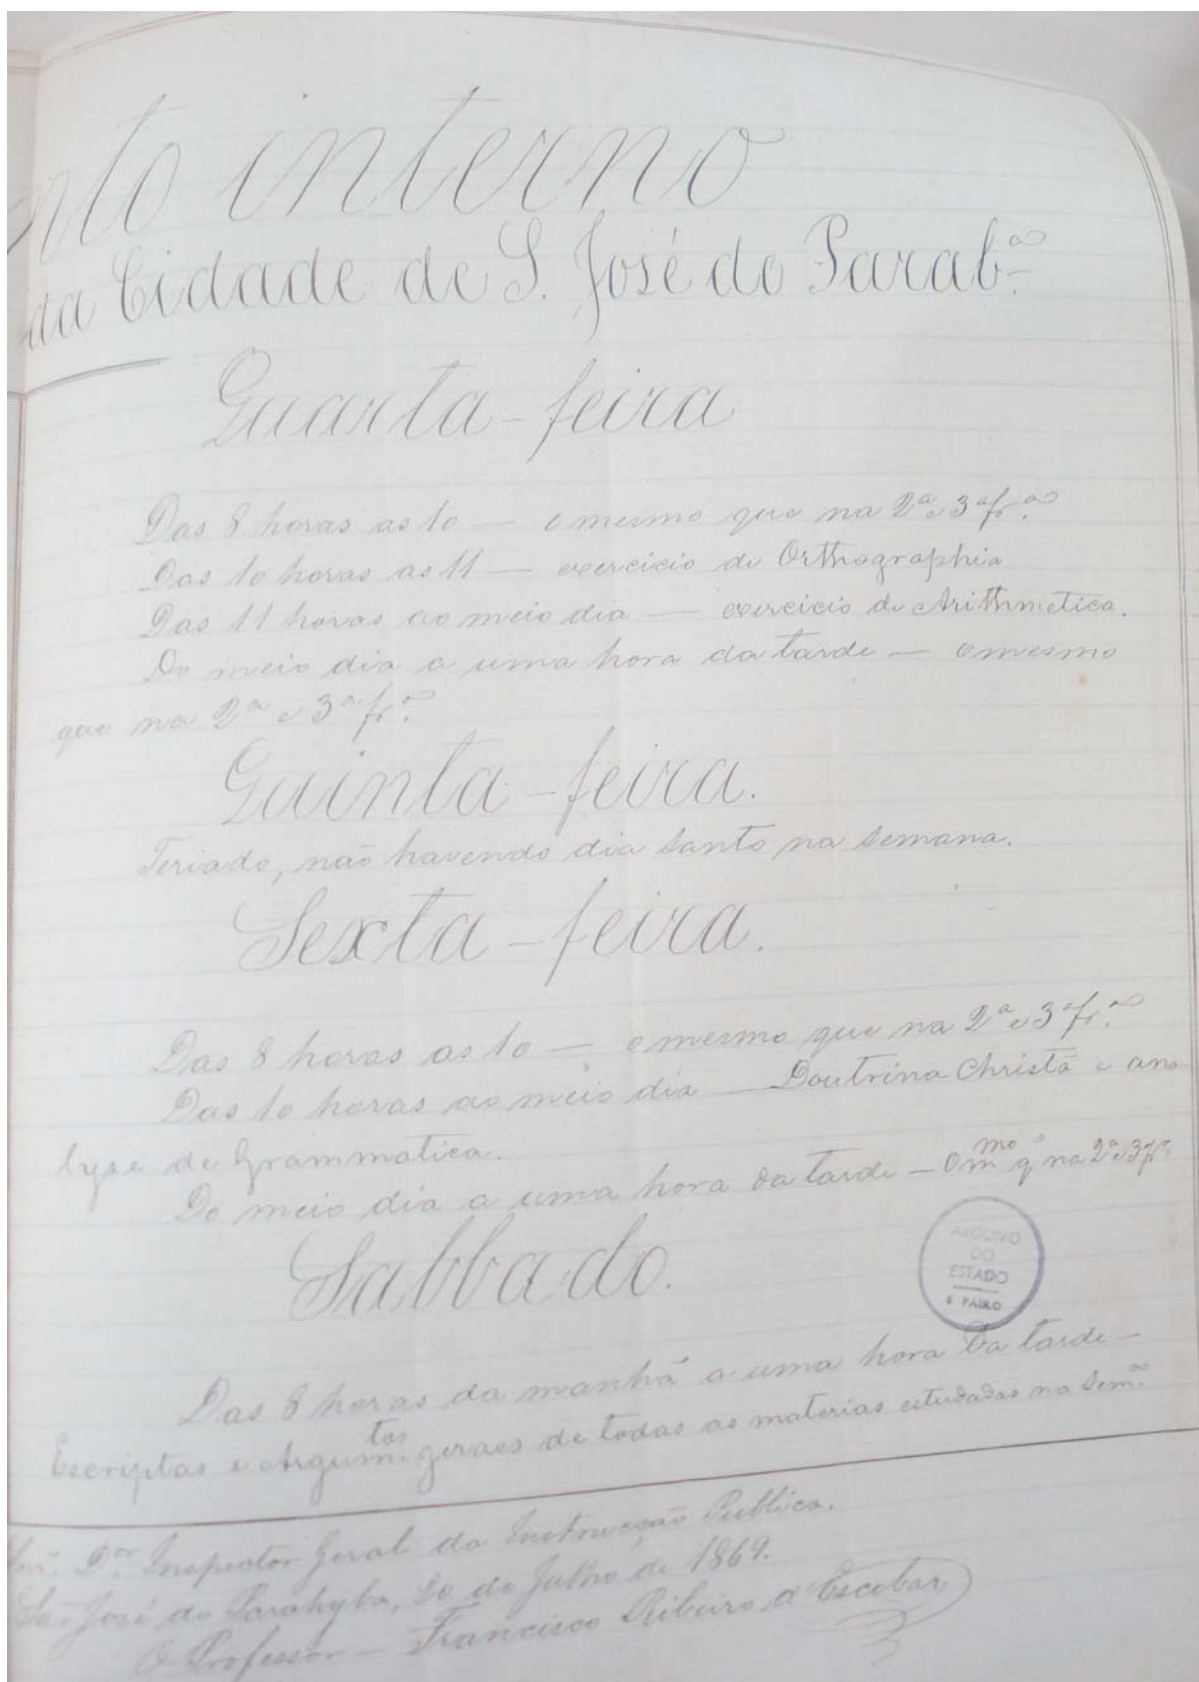 nto interno
da Cidade de S. José do Parab.ª
Quarta-feira
Das 8 horas as 10 — o mesmo que na 2ª e 3ª fr.ª
Das 10 horas as 11 — exercicio de Orthographia
Das 11 horas ao meio dia — exercicio de Arithmetica.
Do meio dia a uma hora da tarde — o mesmo
que na 2ª e 3ª fr.ª
Quinta-feira.
Feriado, não havendo dia santo na semana.
Sexta-feira.
Das 8 horas as 10 — o mesmo que na 2ª e 3ª fr.ª
Das 10 horas ao meio dia — Doutrina Christã e ana
lyse de Grammatica.
Do meio dia a uma hora da tarde — O m.mo q' na 2ª e 3ª fr.ª
Sabbado.
ARQUIVO
DO
ESTADO
S. PAULO
Das 8 horas da manhã a uma hora da tarde —
Escriptas e Argum.tos geraes de todas as materias estudadas na sem.ª
D.or Inspector Geral da Instrucção Publica.
São José do Parahyba, 20 de Julho de 1869.
O Professor — Francisco Ribeiro d'Escobar